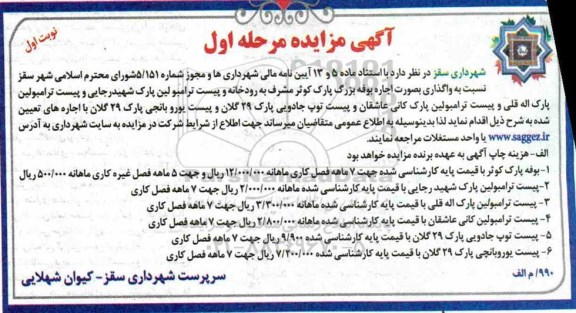 نوبت اول
آگهی مزایده مرحله اول
شهرداری سقز در نظر دارد با استناد ماده ۵ و ۱۳ آیین نامه مالی شهرداری ها و مجوز شماره ۵/۱۵۱شورای محترم اسلامی شهر سقز
نسبت به واگذاری بصورت اجاره بوفه بزرگ پارک کوثر مشرف به رودخانه و پیست ترامبولین پارک شهید رجایی و پیست ترامبولین
پارک اله قلی و پیست ترامبولین پارک کانی عاشقان و پیست توپ جادویی پارک ۲۹ گلان و پیست یورو بانجی پارک ۲۹ گلان با اجاره های تعیین
شده به شرح ذیل اقدام نماید لذا بدینوسیله به اطلاع عموم متقاضیان میرساند جهت اطلاع از شرایط شرکت در مزایده به سایت شهرداری به آدرس
www.saggez.ir یا واحد مستغلات مراجعه نمایند.
الف- هزینه چاپ آگهی به عهده برنده مزایده خواهد بود
۱- بوفه پارک کوثر با قیمت پایه کارشناسی شده جهت ۷ ماهه فصل کاری ماهانه ۱۲/۰۰۰/۰۰۰ ریال و جهت ۵ ماهه فصل غیره کاری ماهانه ۵۰۰/۰۰۰ ریال
۲- پیست ترامبولین پارک شهید رجایی با قیمت پایه کارشناسی شده ماهانه ۲/۰۰۰/۰۰۰ ریال جهت ۷ ماهه فصل کاری
۳- پیست ترامبولین پارک اله قلی با قیمت پایه کارشناسی شده ماهانه ۳/۳۰۰/۰۰۰ ریال جهت ۷ ماهه فصل کاری
۴- پیست ترامبولین کانی عاشقان با قیمت پایه کارشناسی شده ماهانه ۲/۸۰۰/۰۰۰ ریال جهت ۷ ماهه فصل کاری
۵- پیست توپ جادویی پارک ۲۹ گلان با قیمت پایه کارشناسی شده ریال جهت ۷ ماهه فصل کاری
۶- پیست یوروبانجی پارک ۲۹ گلان با قیمت پایه کارشناسی شده ۷/۲۰۰/۰۰۰ ریال جهت ۷ ماهه فصل کاری
۹۹۰/ م الف
سرپرست شهرداری سقز- کیوان شهلایی